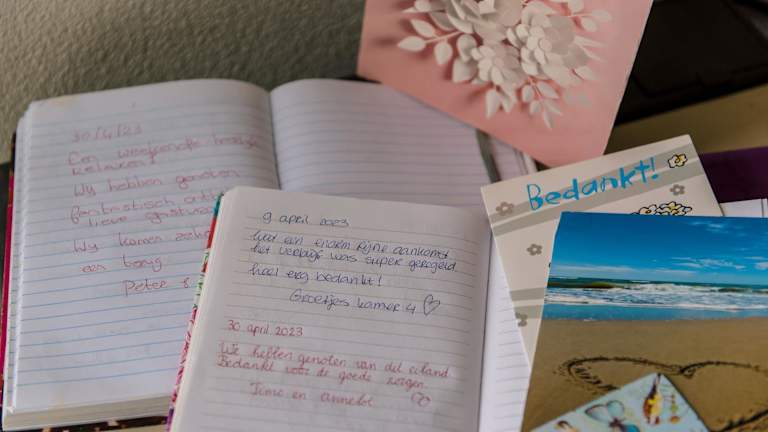 30/4/23
Een weekendje heerlijk
relaxen!
Wij hebben genoten
fantastisch
lieve
Wij komen zeker
een
terug
Peter
9 april 2023
wat een enorm fijne aankomst
het verblijf was super geregeld
heel erg bedankt!
Groetjes kamer 4
30 april 2023
We hebben genoten van dit eiland
Bedankt voor de goede zorgen
Timo en Annelot
Bedankt!